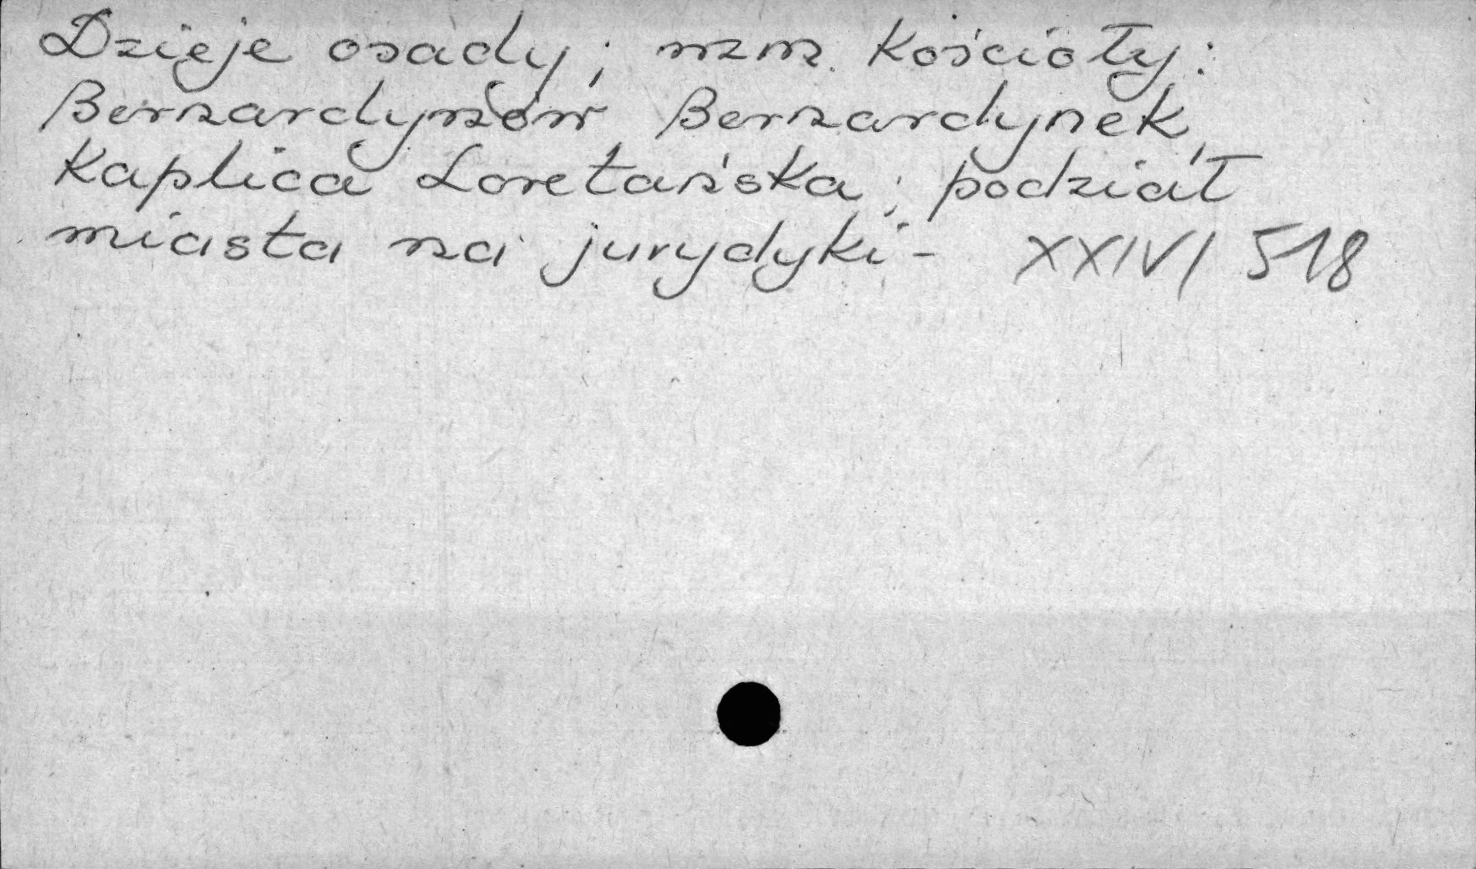 Dzieje osady; wzm. Kościoły:
Bernardynów, Bernardynek,
Kaplica Loretańska; podział
miasta na jurydyki - XXIV/518